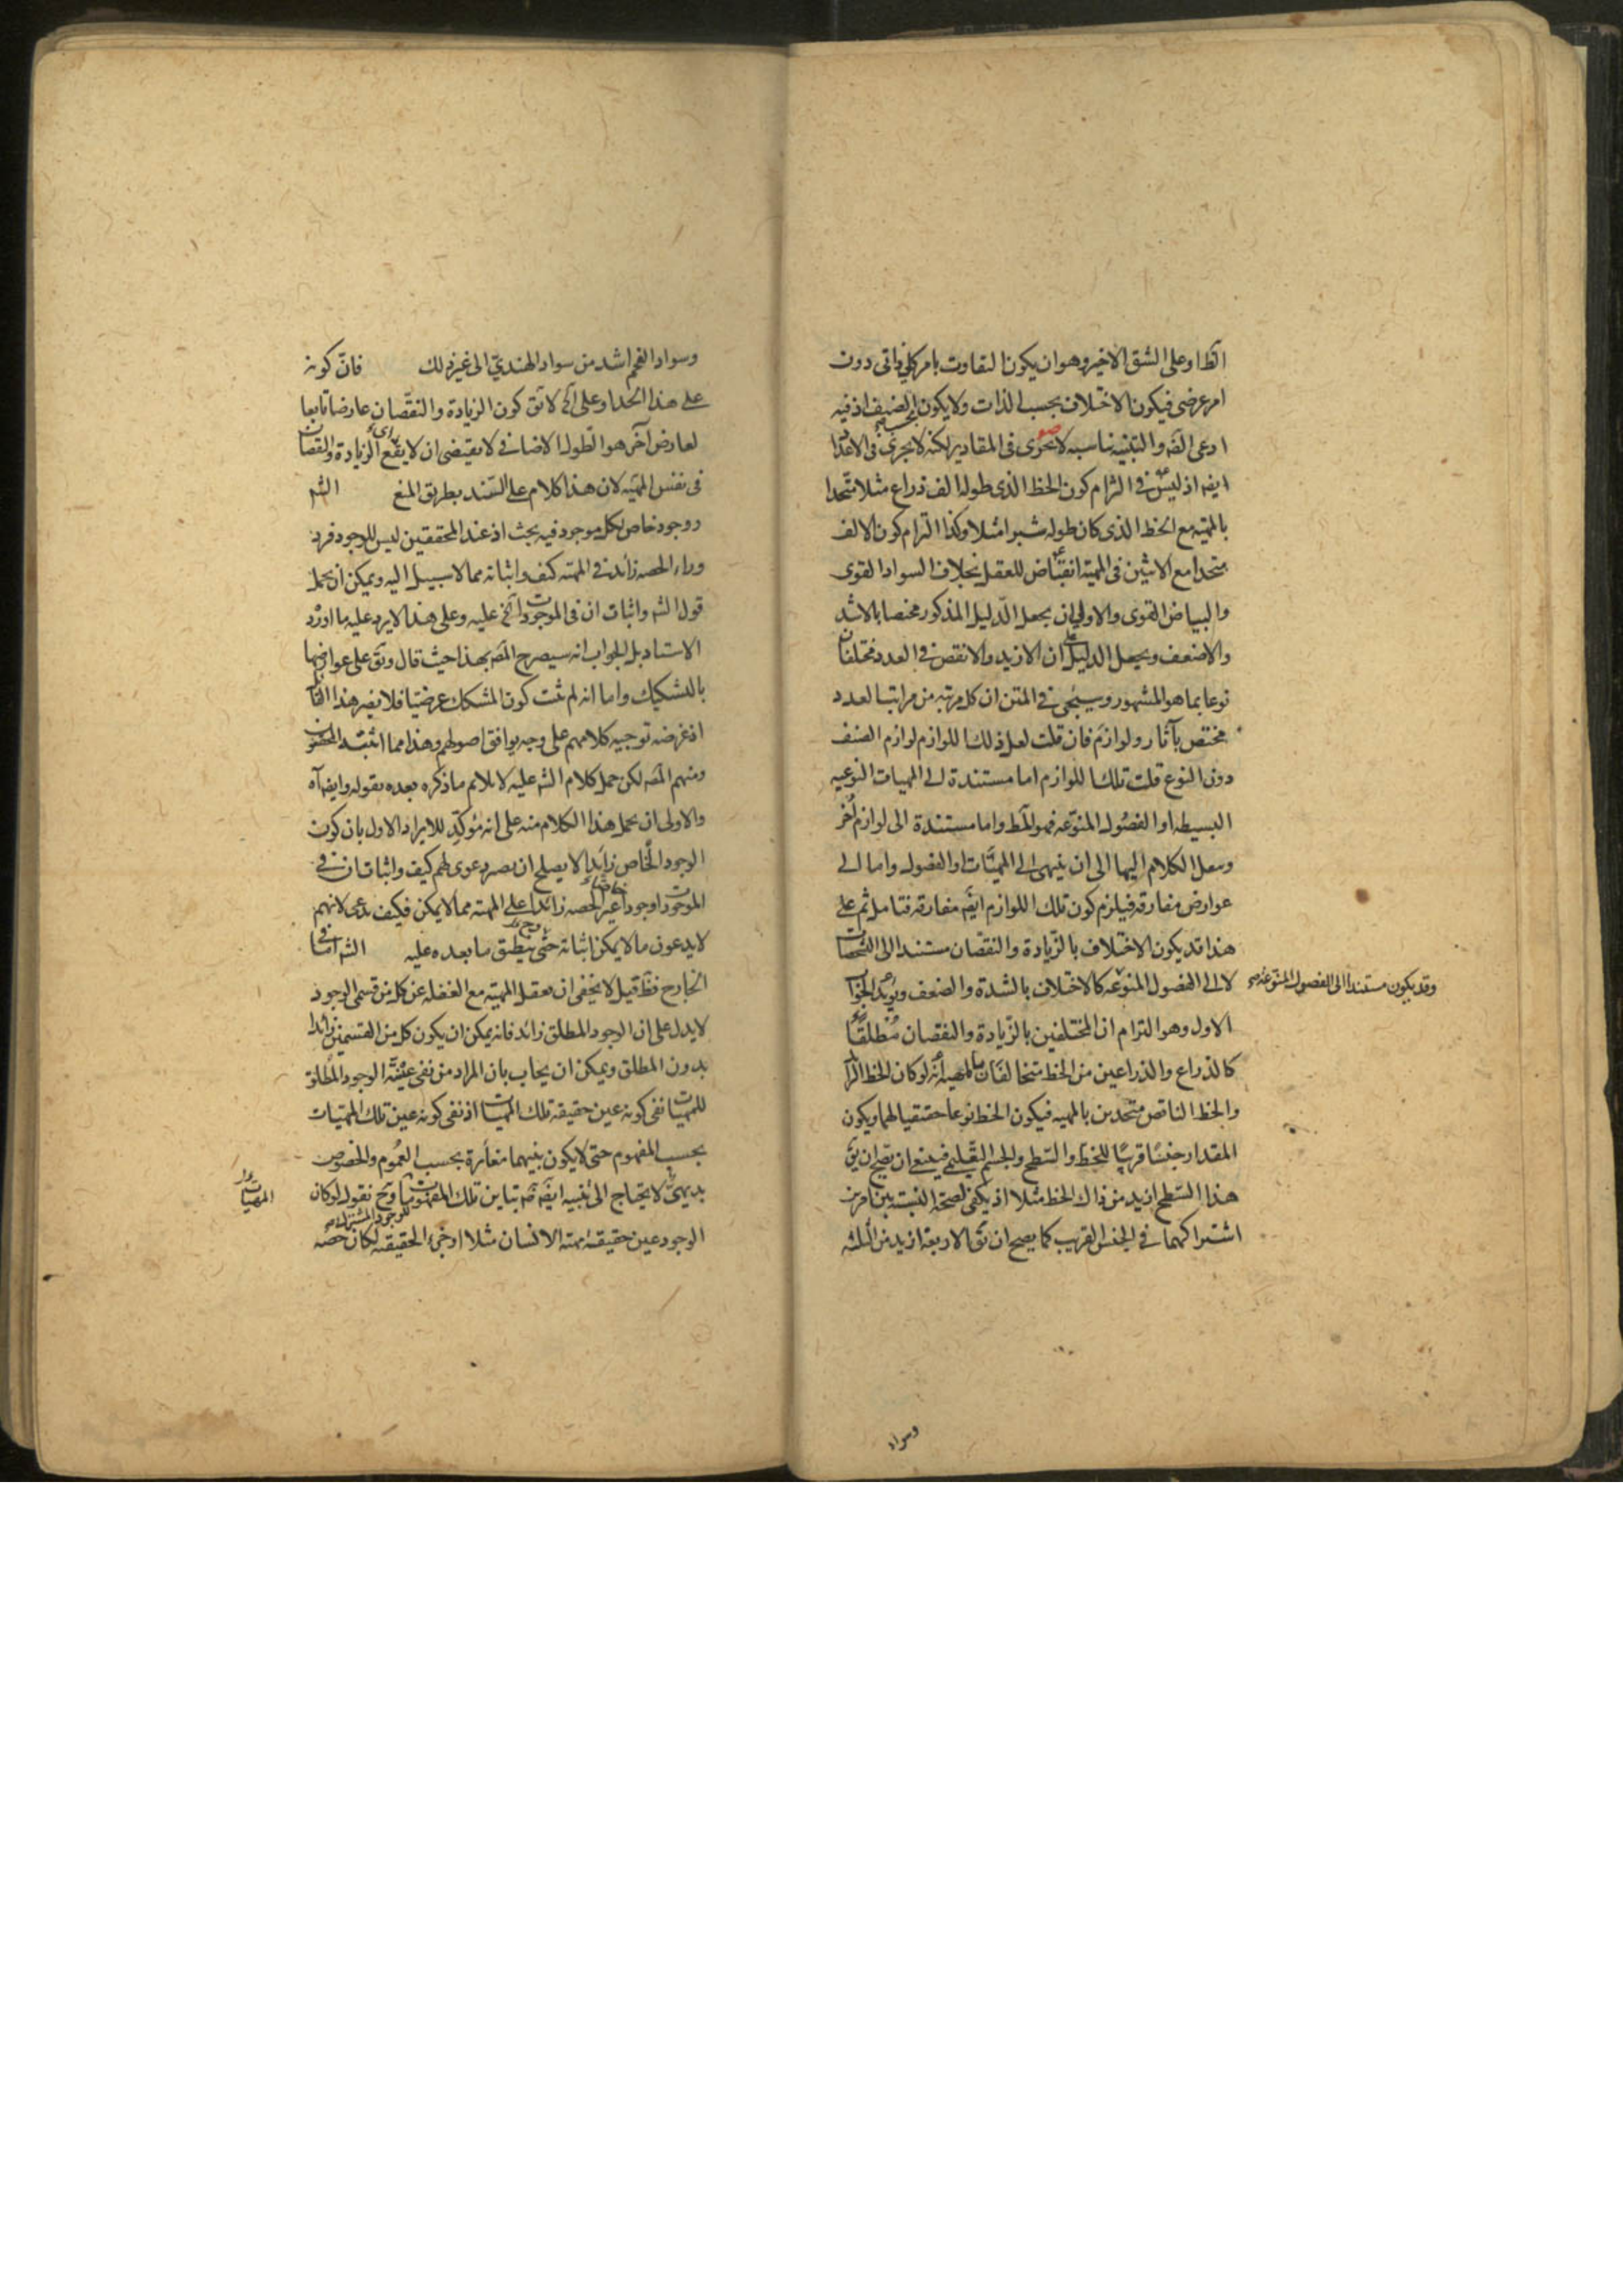 الظا وعلى الشق الاخير وهو ان يكون التفاوت بامر كلي ذاتى دون
امر عرضى فيكون الاختلاف بحسب الذات ولا يكون الضيف اذ فيه
ادعى القم والتنبيه يناسبه لا يجرى فى المقادير لكنه لا يجرى فى الاعداد
ايضا اذ ليس فى التزام كون الخط الذى طوله الف ذراع مثلا متحدا
بالمهية مع الخط الذى كان طوله شبرا مثلا وكذا التزام كون الالف
متحدا مع الاثنين فى المهية انقباض للعقل بخلاف السواد القوى
والبياض القوى والاولى ان يجعل الدليل المذكور مختصا بالاشد
والاضعف ويجعل الدليل على ان الازيد والانقص فى العدد مختلفان
نوعا بما هو المشهور وسيجئ فى المتن ان كل مرتبه من مراتب العدد
مختص بآثار ولوازم فان قلت لعل ذلك اللوازم لوازم الصنف
دون النوع قلت تلك اللوازم اما مستندة الى المهيات النوعيه
البسيطه او الفصول المنوعه فهو المط واما مستندة الى لوازم اخر
وينقل الكلام اليها الى ان ينتهى الى المهيات او الفصول واما الى
عوارض مفارقه فيلزم كون تلك اللوازم ايضا مفارقه فتامل ثم على
هذا قد يكون الاختلاف بالزيادة والنقصان مستندا الى التشخصات
لا الى الفصول المنوعه كالاختلاف بالشدة والضعف ويؤيد الجواب
وقد يكون مستندا الى الفصول المنوعه صح
الاول وهو التزام ان المختلفين بالزيادة والنقصان مطلقا
كالذراع والذراعين من الخط متخالفان بالمهية انه لو كان الخط الزائد
والخط الناقص متحدين بالمهيه فيكون الخط نوعا حقيقيا لهما ويكون
المقدار جنسا قريبا للخط والسطح والجسم التعليمى فينبغى ان يصح ان يق
هذا السطح ازيد من ذاك الخط مثلا اذ يكفى لصحة النسبة بين امرين
اشتراكهما فى الجنس القريب كما يصح ان يق الاربعة ازيد من الثلثه
وسواد
وسواد الفحم اشد من سواد الهندى الى غير ذلك فان كونه
على هذا الحد او على آخر لا يق كون الزيادة والنقصان عارضا تابعا
لعارض آخر هو الطول الاضافى لا يقتضى ان لا يقع الزيادة والنقصان
فى نفس المهيه لان هذا كلام على السند بطريق المنع الشم
ووجود خاص لكل موجود فيه بحث اذ عند المحققين ليس للوجود فرد
وراء الحصه زائد فى المهيه كيف واثباته مما لا سبيل اليه ويمكن ان يحمل
قول الشم واثبات ان فى الموجودات الخ عليه وعلى هذا لا يرد عليه ما اورد
الاستاد بل الجواب انه سيصرح المص بهذا حيث قال ويق على عوارضها
بالتشكيك واما انه لم يثبت كون المشكك عرضيا فلا يضر هذا القائل
اذ غرضه توجيه كلامهم على وجه يوافق اصولهم وهذا مما اثبته المحققون
ومنهم المص لكن حمل كلام الشم عليه لا يلائم ما ذكره بعده بقوله وايضا آه
والاولى ان يحمل هذا الكلام منه على انه مؤكد للايراد الاول بان كون
الوجود الخاص زائدا لا يصلح ان يصير دعوى لهم كيف واثبات ان فى
الموجودات وجودا خاصا غير الحصه زائدا على المهيه مما لا يمكن فكيف يدعى لانهم
لا يدعون ما لا يمكن اثباته حتى ينطبق ما بعده عليه الشم اما فى
الخارج فظ قيل لا يخفى ان تعقل المهيه مع الغفله عن كل من قسمى الوجود
لا يدل على ان الوجود المطلق زائد فانه يمكن ان يكون كل من القسمين زائدا
بدون المطلق ويمكن ان يجاب بان المراد من نفى عينية الوجود المطلق
للمهيات نفى كونه عين حقيقه تلك المهيات اذ نفى كونه عين تلك المهيات
بحسب المفهوم حتى لا يكون بينهما مغايرة بحسب العموم والخصوص
بديهى لا يحتاج الى تنبيه ايضا ثم تباين تلك المفهومات وح نقول لو كان
المهيات
الوجود عين حقيقة مهية الانسان مثلا او جزء الحقيقه لكان حصه للوجود المشترك صح